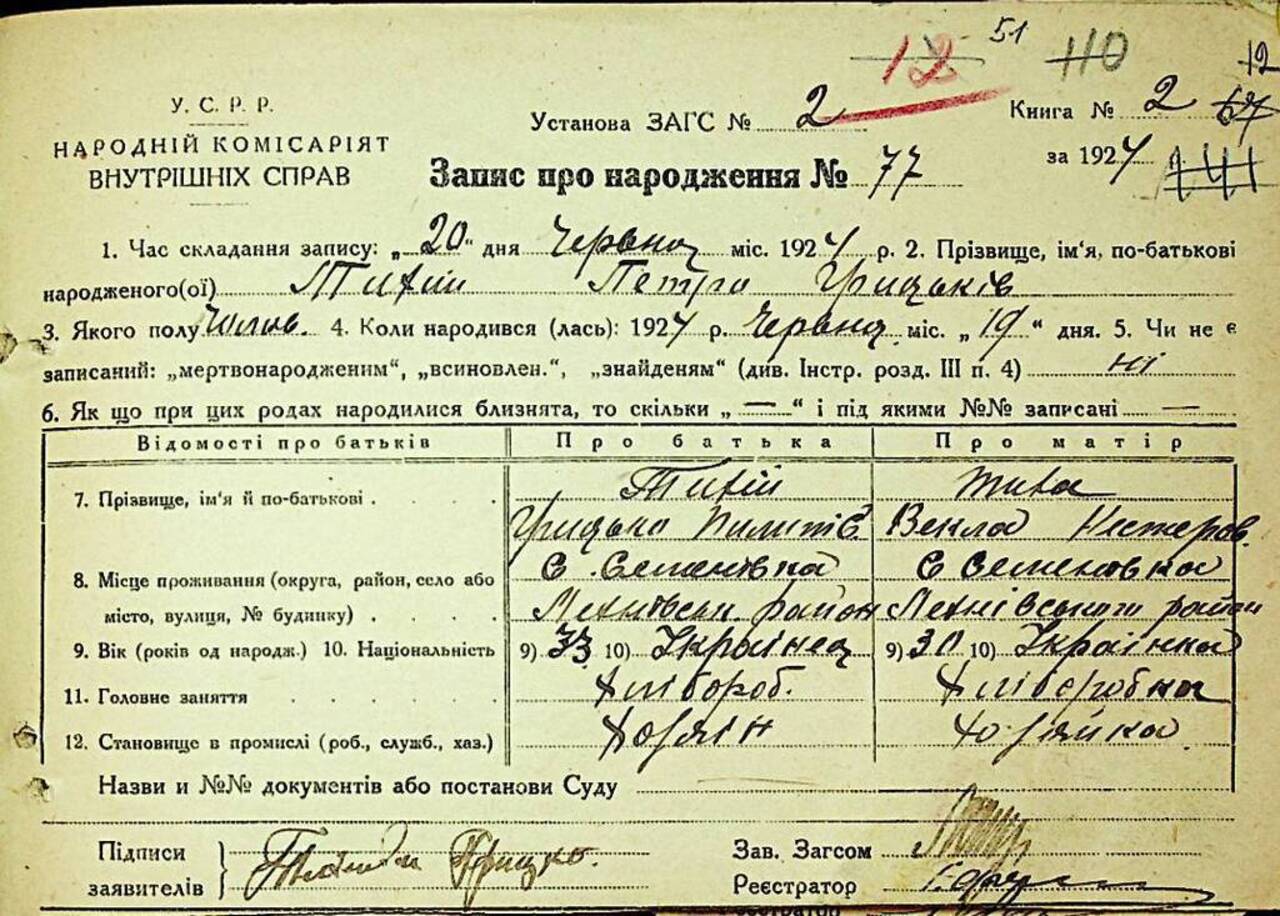 12 51 110 12
У. С. Р. Р.
НАРОДНІЙ КОМІСАРІЯТ
ВНУТРІШНІХ СПРАВ
Установа ЗАГС № 2
Книга № 2 67
за 1924 141
Запис про народження № 77
1. Час складання запису: „20" дня Червня міс. 1924 р. 2. Прізвище, ім'я, по-батькові
народженого(ої) Тихий Петро Грицьків
3. Якого полу Чолов. 4. Коли народився (лась): 1924 р. Червня міс. „19" дня. 5. Чи не є
записаний: „мертвонародженим", „всиновлен.", „знайденям" (див. Інстр. розд. III п. 4) ні
6. Як що при цих родах народилися близнята, то скільки „—" і під якими №№ записані —
Відомості про батьків Про батька Про матір
7. Прізвище, ім'я й по-батькові . . . . Тихій Тиха
Грицько Пилипів. Векла Нестеров.
8. Місце проживання (округа, район, село або С. Семенівка С Семеновка
місто, вулиця, № будинку) . . . . район
9. Вік (років од народж.) 10. Національність 9) 33 10) Українец 9) 30 10) Українка
11. Головне заняття . . . . . Хлібороб. Хлібөробка
12. Становище в промислі (роб., служб., хаз.) Хозяїн Хозяйка
Назви и №№ документів або постанови Суду
Підписи
заявителів
Грицко.
Зав. Загсом
Реєстратор